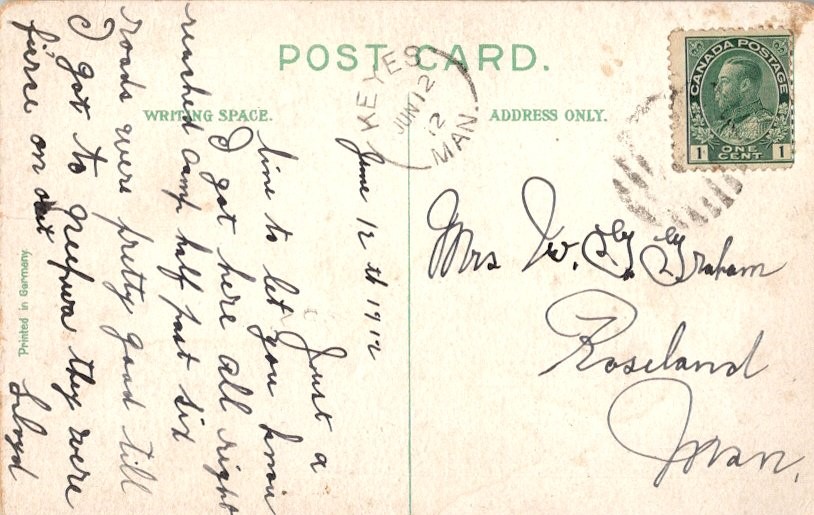 POST CARD.
WRITING SPACE.
ADDRESS ONLY.
KEYES
JUN 12
12
MAN.
CANADA POSTAGE
1 ONE CENT 1
June 12th 1912
Just a
line to let you know
I got here all right
reached camp half past six
roads were pretty good till
I got to they were
fierce on
Lloyd
Mrs W. G. Graham
Roseland
Man.
Printed in Germany